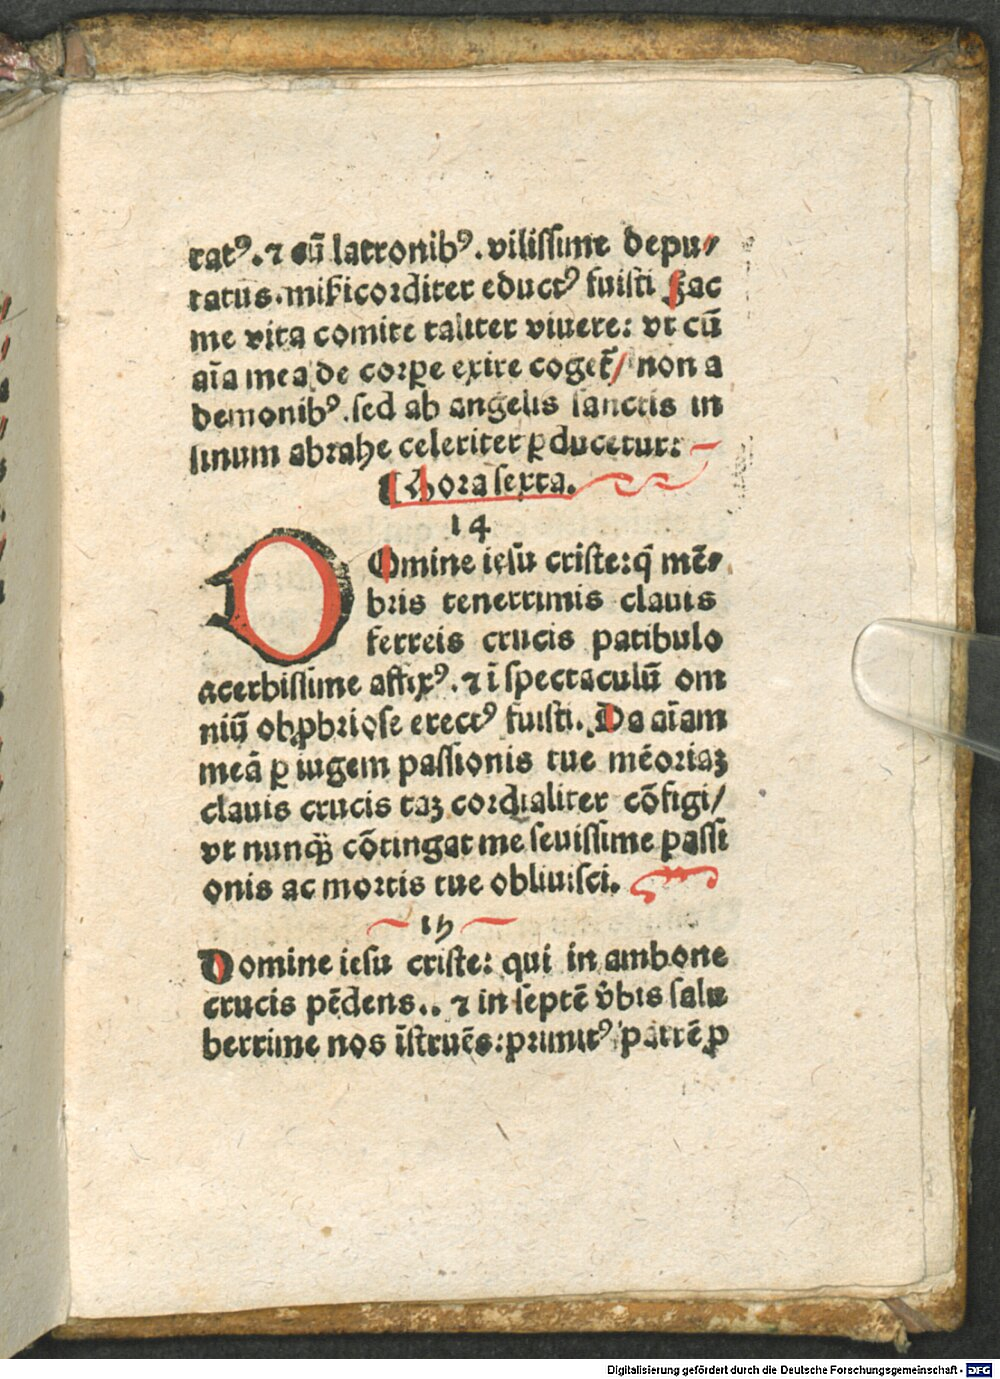 tatꝰ.⁊ cū latronibꝰ.vilissime depu/
tatus.mißicorditer eductꝰ fuisti Fac
me vita comite taliter viuere: vt cū
aīa mea de corꝑe exire coget̄/ non a
demonibꝰ.sed ab angelis sanctis in
sinum abrahe celeriter ꝑducetur:
Hora sexta.
14
DOmine iesū criste:q̄ mē/
bris tenerrimis clauis
ferreis crucis patibulo
acerbissime affixꝰ.⁊ ī spectaculū om
niū obꝓbriose erectꝰ fuisti. Da aīam
meā ꝑ iugem passionis tue mēoriaꝫ
clauis crucis taꝫ cordialiter cōfigi/
vt nunꝙ̄ cōtingat me seuissime passi
onis ac mortis tue obliuisci.
15
Domine iesu criste: qui in ambone
crucis pēdens.. ⁊ in septē v̄bis salu
berrime nos īstruēs:primitꝰ patrē ꝓ
Digitalisierung gefördert durch die Deutsche Forschungsgemeinschaft - DFG